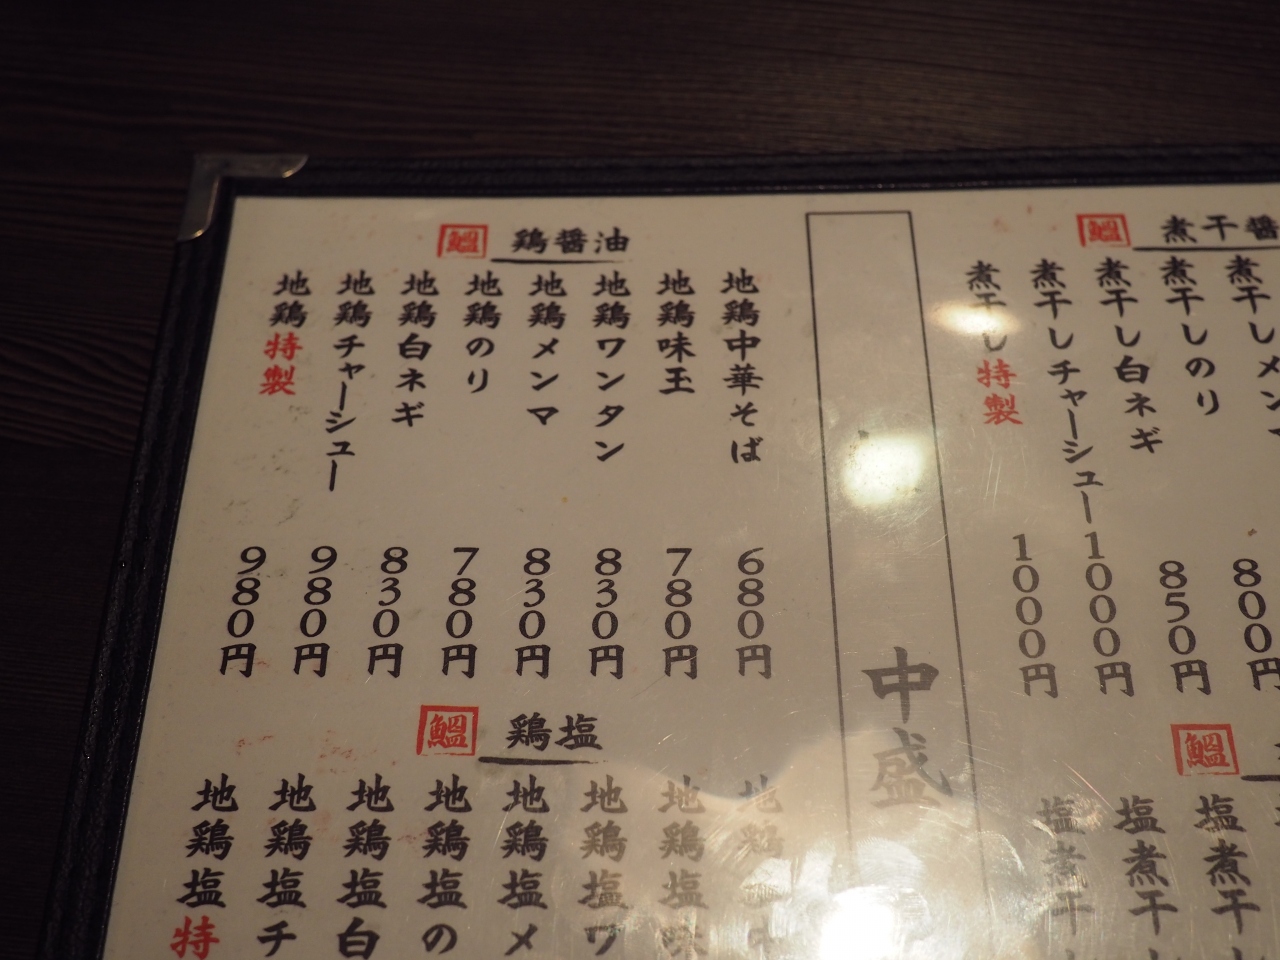 鰮 煮干醤
煮干しメン
煮干しのり
800円
煮干し白ネギ
850円
煮干しチャーシュー
1000円
煮干し特製
1000円
鰮
塩煮干し
塩煮干し
塩煮干
中盛
鰮 鶏醤油
地鶏中華そば
680円
地鶏味玉
780円
地鶏ワンタン
830円
地鶏メンマ
830円
地鶏のり
780円
地鶏白ネギ
830円
地鶏チャーシュー
980円
地鶏特製
980円
鰮 鶏塩
地鶏
地鶏塩味
地鶏塩ワ
地鶏塩メ
地鶏塩の
地鶏塩白
地鶏塩チ
地鶏塩特